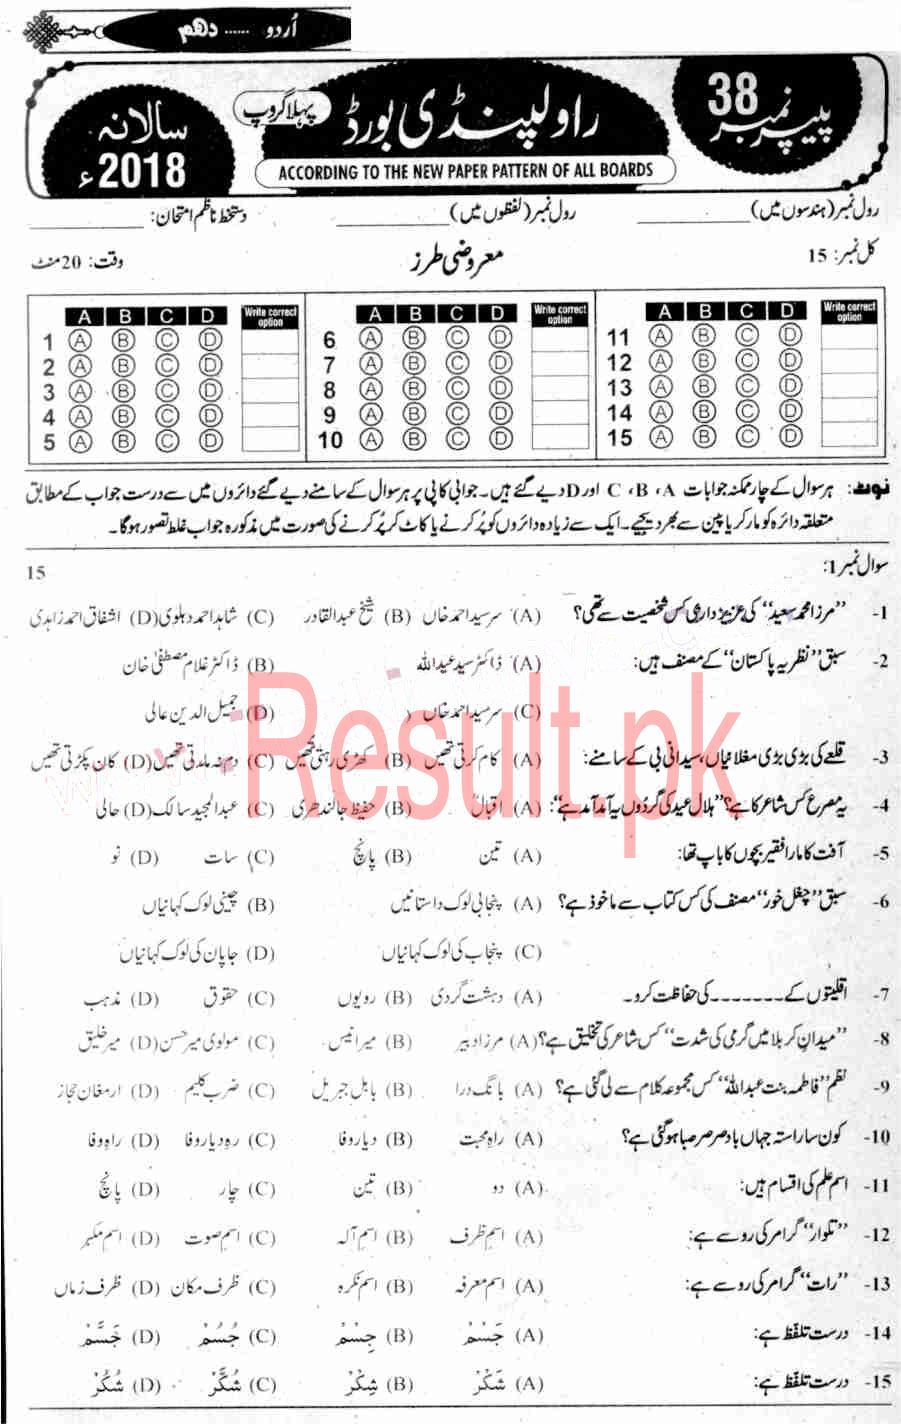 اُردو ...... دھم
پیپر نمبر 38
راولپنڈی بورڈ
پہلا گروپ
سالانہ 2018ء
ACCORDING TO THE NEW PAPER PATTERN OF ALL BOARDS
رول نمبر (ہندسوں میں) ________ رول نمبر (لفظوں میں) ________ دستخط ناظم امتحان: ________
کل نمبر: 15 معروضی طرز وقت: 20 منٹ
A B C D Write correct option A B C D Write correct option A B C D Write correct option
1 A B C D 6 A B C D 11 A B C D
2 A B C D 7 A B C D 12 A B C D
3 A B C D 8 A B C D 13 A B C D
4 A B C D 9 A B C D 14 A B C D
5 A B C D 10 A B C D 15 A B C D
نوٹ: ہر سوال کے چار ممکنہ جوابات A ، B ، C اور D دیے گئے ہیں۔ جوابی کاپی پر ہر سوال کے سامنے دیے گئے دائروں میں سے درست جواب کے مطابق
متعلقہ دائرہ کو مارکر یا پین سے بھر دیجیے۔ ایک سے زیادہ دائروں کو پُر کرنے یا کاٹ کر پُر کرنے کی صورت میں مذکورہ جواب غلط تصور ہوگا۔
سوال نمبر 1: 15
1- ”مرزا محمد سعید“ کی عزیز داری کس شخصیت سے تھی؟ (A) سر سید احمد خاں (B) شیخ عبدالقادر (C) شاہد احمد دہلوی (D) اشفاق احمد زاہدی
2- سبق ”نظریہ پاکستان“ کے مصنف ہیں: (A) ڈاکٹر سید عبداللہ (B) ڈاکٹر غلام مصطفیٰ خان
(C) سر سید احمد خاں (D) جمیل الدین عالی
3- قلعے کی بڑی بڑی مغلانیاں، سیدانی بی کے سامنے: (A) کام کرتی تھیں (B) کھڑی رہتی تھیں (C) دم نہ مارتی تھیں (D) کان پکڑتی تھیں
4- یہ مصرع کس شاعر کا ہے؟ ”ہلال عید کی گردُوں پہ آمد آمد ہے“: (A) اقبالؒ (B) حفیظ جالندھری (C) عبدالمجید سالک (D) حالی
5- آفت کا مارا فقیر بچوں کا باپ تھا: (A) تین (B) پانچ (C) سات (D) نو
6- سبق ”چغل خور“ مصنف کی کس کتاب سے ماخوذ ہے؟ (A) پنجابی لوک داستانیں (B) چینی لوک کہانیاں
(C) پنجاب کی لوک کہانیاں (D) جاپان کی لوک کہانیاں
7- اقلیتوں کے ۔۔۔۔۔۔۔ کی حفاظت کرو۔ (A) دہشت گردی (B) رویوں (C) حقوق (D) مذہب
8- ”میدانِ کربلا میں گرمی کی شدت“ کس شاعر کی تخلیق ہے؟ (A) مرزا دبیر (B) میر انیس (C) مولوی میر حسن (D) میر خلیق
9- نظم ”فاطمہ بنت عبداللہ“ کس مجموعہ کلام سے لی گئی ہے؟ (A) بانگ درا (B) بال جبریل (C) ضرب کلیم (D) ارمغان حجاز
10- کون سا راستہ جہاں بادِ صرصر صبا ہو گئی ہے؟ (A) راہِ محبت (B) دیارِ وفا (C) رہِ دیارِ وفا (D) راہِ وفا
11- اسم علم کی اقسام ہیں: (A) دو (B) تین (C) چار (D) پانچ
12- ”تلوار“ گرامر کی رو سے ہے: (A) اسم ظرف (B) اسم آلہ (C) اسم صوت (D) اسم مکبر
13- ”رات“ گرامر کی رو سے ہے: (A) اسم معرفہ (B) اسم نکرہ (C) ظرف مکان (D) ظرف زماں
14- درست تلفظ ہے: (A) جَسْمْ (B) جِسْمْ (C) جُسُمْ (D) جَسَّمْ
15- درست تلفظ ہے: (A) شَکْرْ (B) شِکْرْ (C) شُکَّرْ (D) شُکْرْ
Result.pk